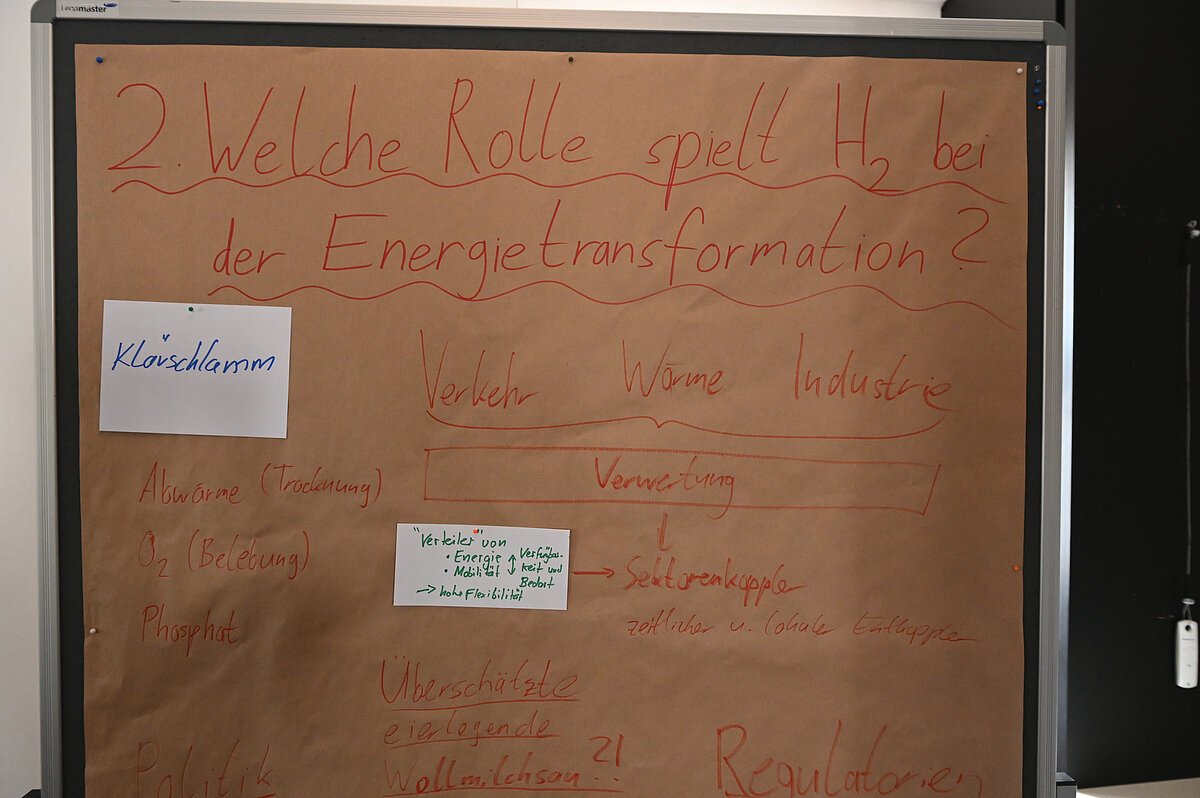 Legamaster
2. Welche Rolle spielt H₂ bei
der Energietransformation?
Klärschlamm
Verkehr Wärme Industrie
Verwertung
Abwärme (Trocknung)
O₂ (Belebung)
Phosphat
"Verteiler" von
• Energie
• Mobilität
↕ Verfügbar-
keit und
Bedarf
→ hohe Flexibilität
→ Sektorenkoppler
zeitlicher u. lokaler Entkoppler
Überschätzte
eierlegende
Wollmilchsau?!
Politik
Regulatorien